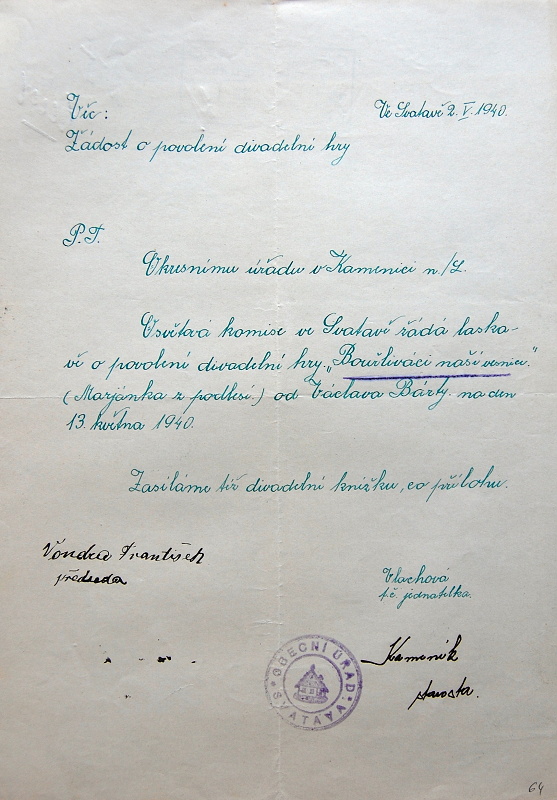 Věc:
Ve Svatavě 2. V. 1940.
Žádost o povolení divadelní hry
P. T.
Okresnímu úřadu v Kamenici n/L.
Osvětová komise ve Svatavě žádá laska-
vě o povolení divadelní hry „Bouřliváci naší vesnice.“
(Marjánka z podlesí.) od Václava Bárty. na den
13. května 1940.
Zasíláme též divadelní knížku, co přílohu.
Vondra František
předseda
Vlachová
t. č. jednatelka.
Kameník
starosta.
OBECNÍ ÚŘAD SVATAVA
64